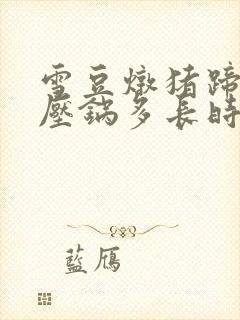 雪豆燉猪蹄
壓鍋多長時
藍鴈